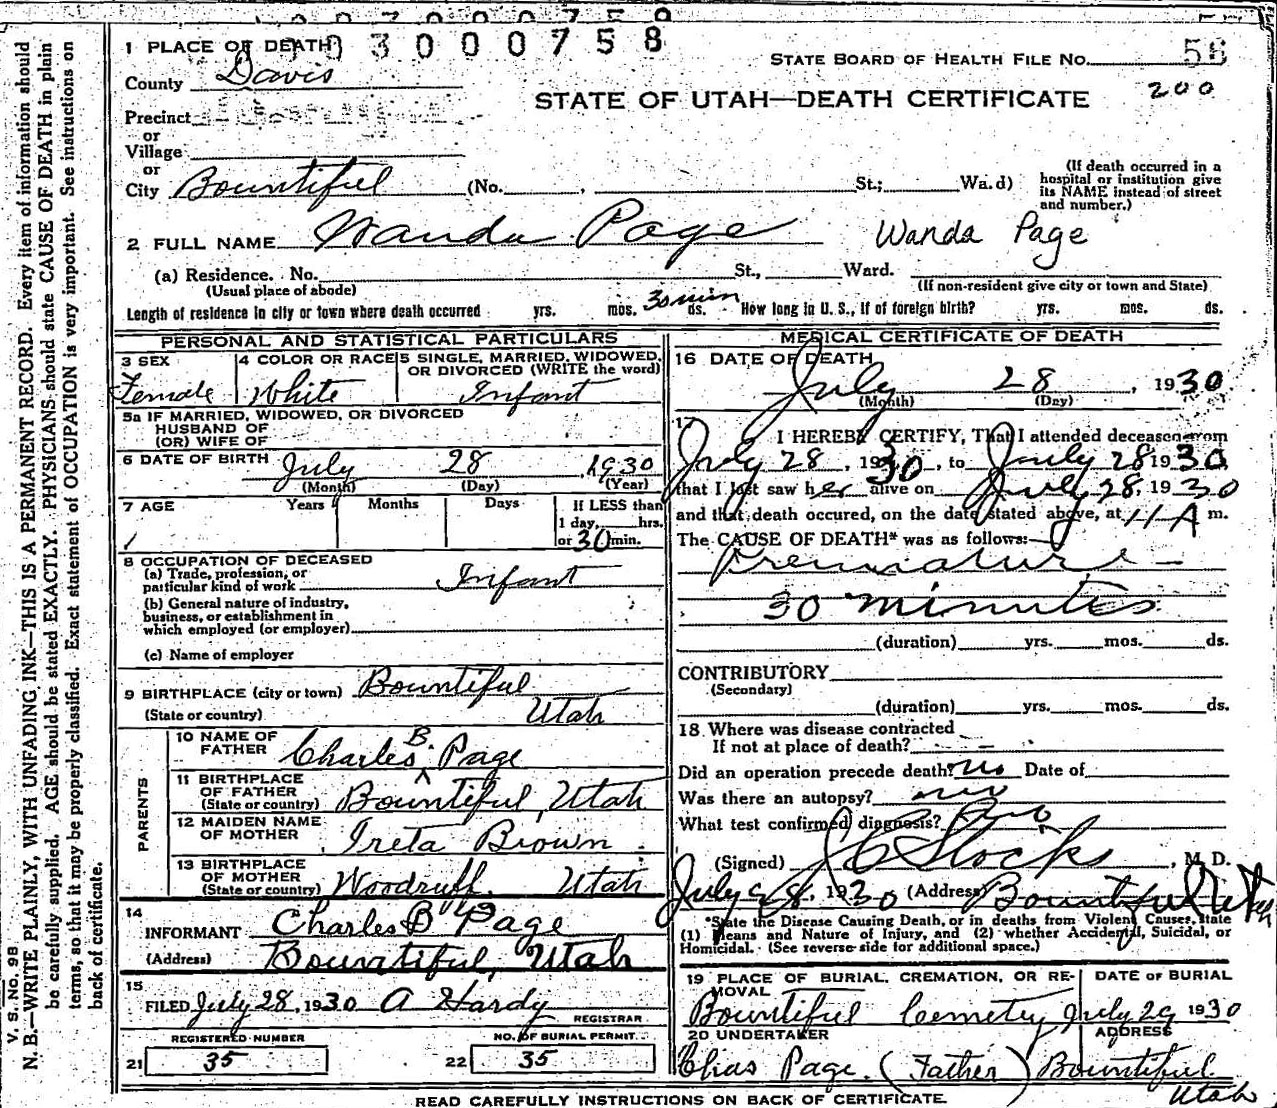 003000758
1 PLACE OF DEATH
County Davis
STATE BOARD OF HEALTH FILE No. 58
200
STATE OF UTAH—DEATH CERTIFICATE
Precinct
or
Village
or
City Bountiful (No. , St.; Wa.d)
(If death occurred in a
hospital or institution give
its NAME instead of street
and number.)
2 FULL NAME Wanda Page Wanda Page
(a) Residence. No. St., Ward.
(Usual place of abode) (If non-resident give city or town and State)
Length of residence in city or town where death occurred yrs. mos. 30 min ds. How long in U. S., if of foreign birth? yrs. mos. ds.
PERSONAL AND STATISTICAL PARTICULARS
3 SEX
Female
4 COLOR OR RACE
White
5 SINGLE, MARRIED, WIDOWED,
OR DIVORCED (WRITE the word)
Infant
5a IF MARRIED, WIDOWED, OR DIVORCED
HUSBAND OF
(OR) WIFE OF
6 DATE OF BIRTH July 28, 1930
(Month) (Day) (Year)
7 AGE Years Months Days If LESS than
1 day, hrs.
or 30 min.
8 OCCUPATION OF DECEASED
(a) Trade, profession, or
particular kind of work Infant
(b) General nature of industry,
business, or establishment in
which employed (or employer)
(c) Name of employer
9 BIRTHPLACE (city or town) Bountiful
(State or country) Utah
PARENTS
10 NAME OF
FATHER Charles B. Page
11 BIRTHPLACE
OF FATHER
(State or country) Bountiful, Utah
12 MAIDEN NAME
OF MOTHER Ireta Brown
13 BIRTHPLACE
OF MOTHER
(State or country) Woodruff, Utah
14
INFORMANT Charles B Page
(Address) Bountiful, Utah
15
FILED July 28, 1930 A Hardy
REGISTRAR
REGISTERED NUMBER
21 35
NO. OF BURIAL PERMIT
22 35
MEDICAL CERTIFICATE OF DEATH
16 DATE OF DEATH
July 28, 1930
(Month) (Day)
17
I HEREBY CERTIFY, That I attended deceased from
July 28, 1930, to July 28 1930
that I last saw her alive on July 28, 1930
and that death occured, on the date stated above, at 11 A m.
The CAUSE OF DEATH* was as follows:
Premature —
30 minutes
(duration) yrs. mos. ds.
CONTRIBUTORY
(Secondary)
(duration) yrs. mos. ds.
18 Where was disease contracted
If not at place of death?
Did an operation precede death? no Date of
Was there an autopsy? no
What test confirmed diagnosis?
(Signed) J C Stocks, M. D.
July 28, 1930 (Address) Bountiful Utah
*State the Disease Causing Death, or in deaths from Violent Causes, state
(1) Means and Nature of Injury, and (2) whether Accidental, Suicidal, or
Homicidal. (See reverse side for additional space.)
19 PLACE OF BURIAL, CREMATION, OR RE-
MOVAL
Bountiful Cemetry
DATE OF BURIAL
July 29 1930
20 UNDERTAKER
Chas Page. (Father)
ADDRESS
Bountiful
Utah
READ CAREFULLY INSTRUCTIONS ON BACK OF CERTIFICATE
V. S. NO. 98
N. B.—WRITE PLAINLY, WITH UNFADING INK—THIS IS A PERMANENT RECORD. Every item of information should
be carefully supplied. AGE should be stated EXACTLY. PHYSICIANS should state CAUSE OF DEATH in plain
terms, so that it may be properly classified. Exact statement of OCCUPATION is very important. See instructions on
back of certificate.